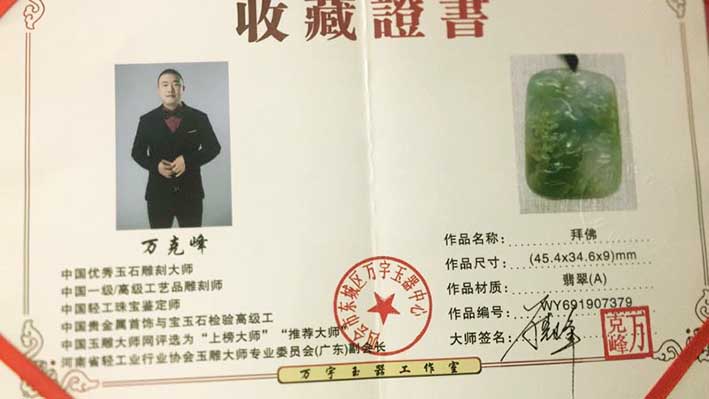 收藏證書
万克峰
中国优秀玉石雕刻大师
中国一级/高级工艺品雕刻师
中国轻工珠宝鉴定师
中国贵金属首饰与宝玉石检验高级工
中国玉雕大师网评选为“上榜大师”“推荐大师”
河南省轻工业行业协会玉雕大师专业委员会(广东)副会长
四会市东城区万宇玉器中心
作品名称: 拜佛
作品尺寸: (45.4x34.6x9)mm
作品材质: 翡翠(A)
作品编号: WY691907379
大师签名:
万克峰
万宇玉器工作室